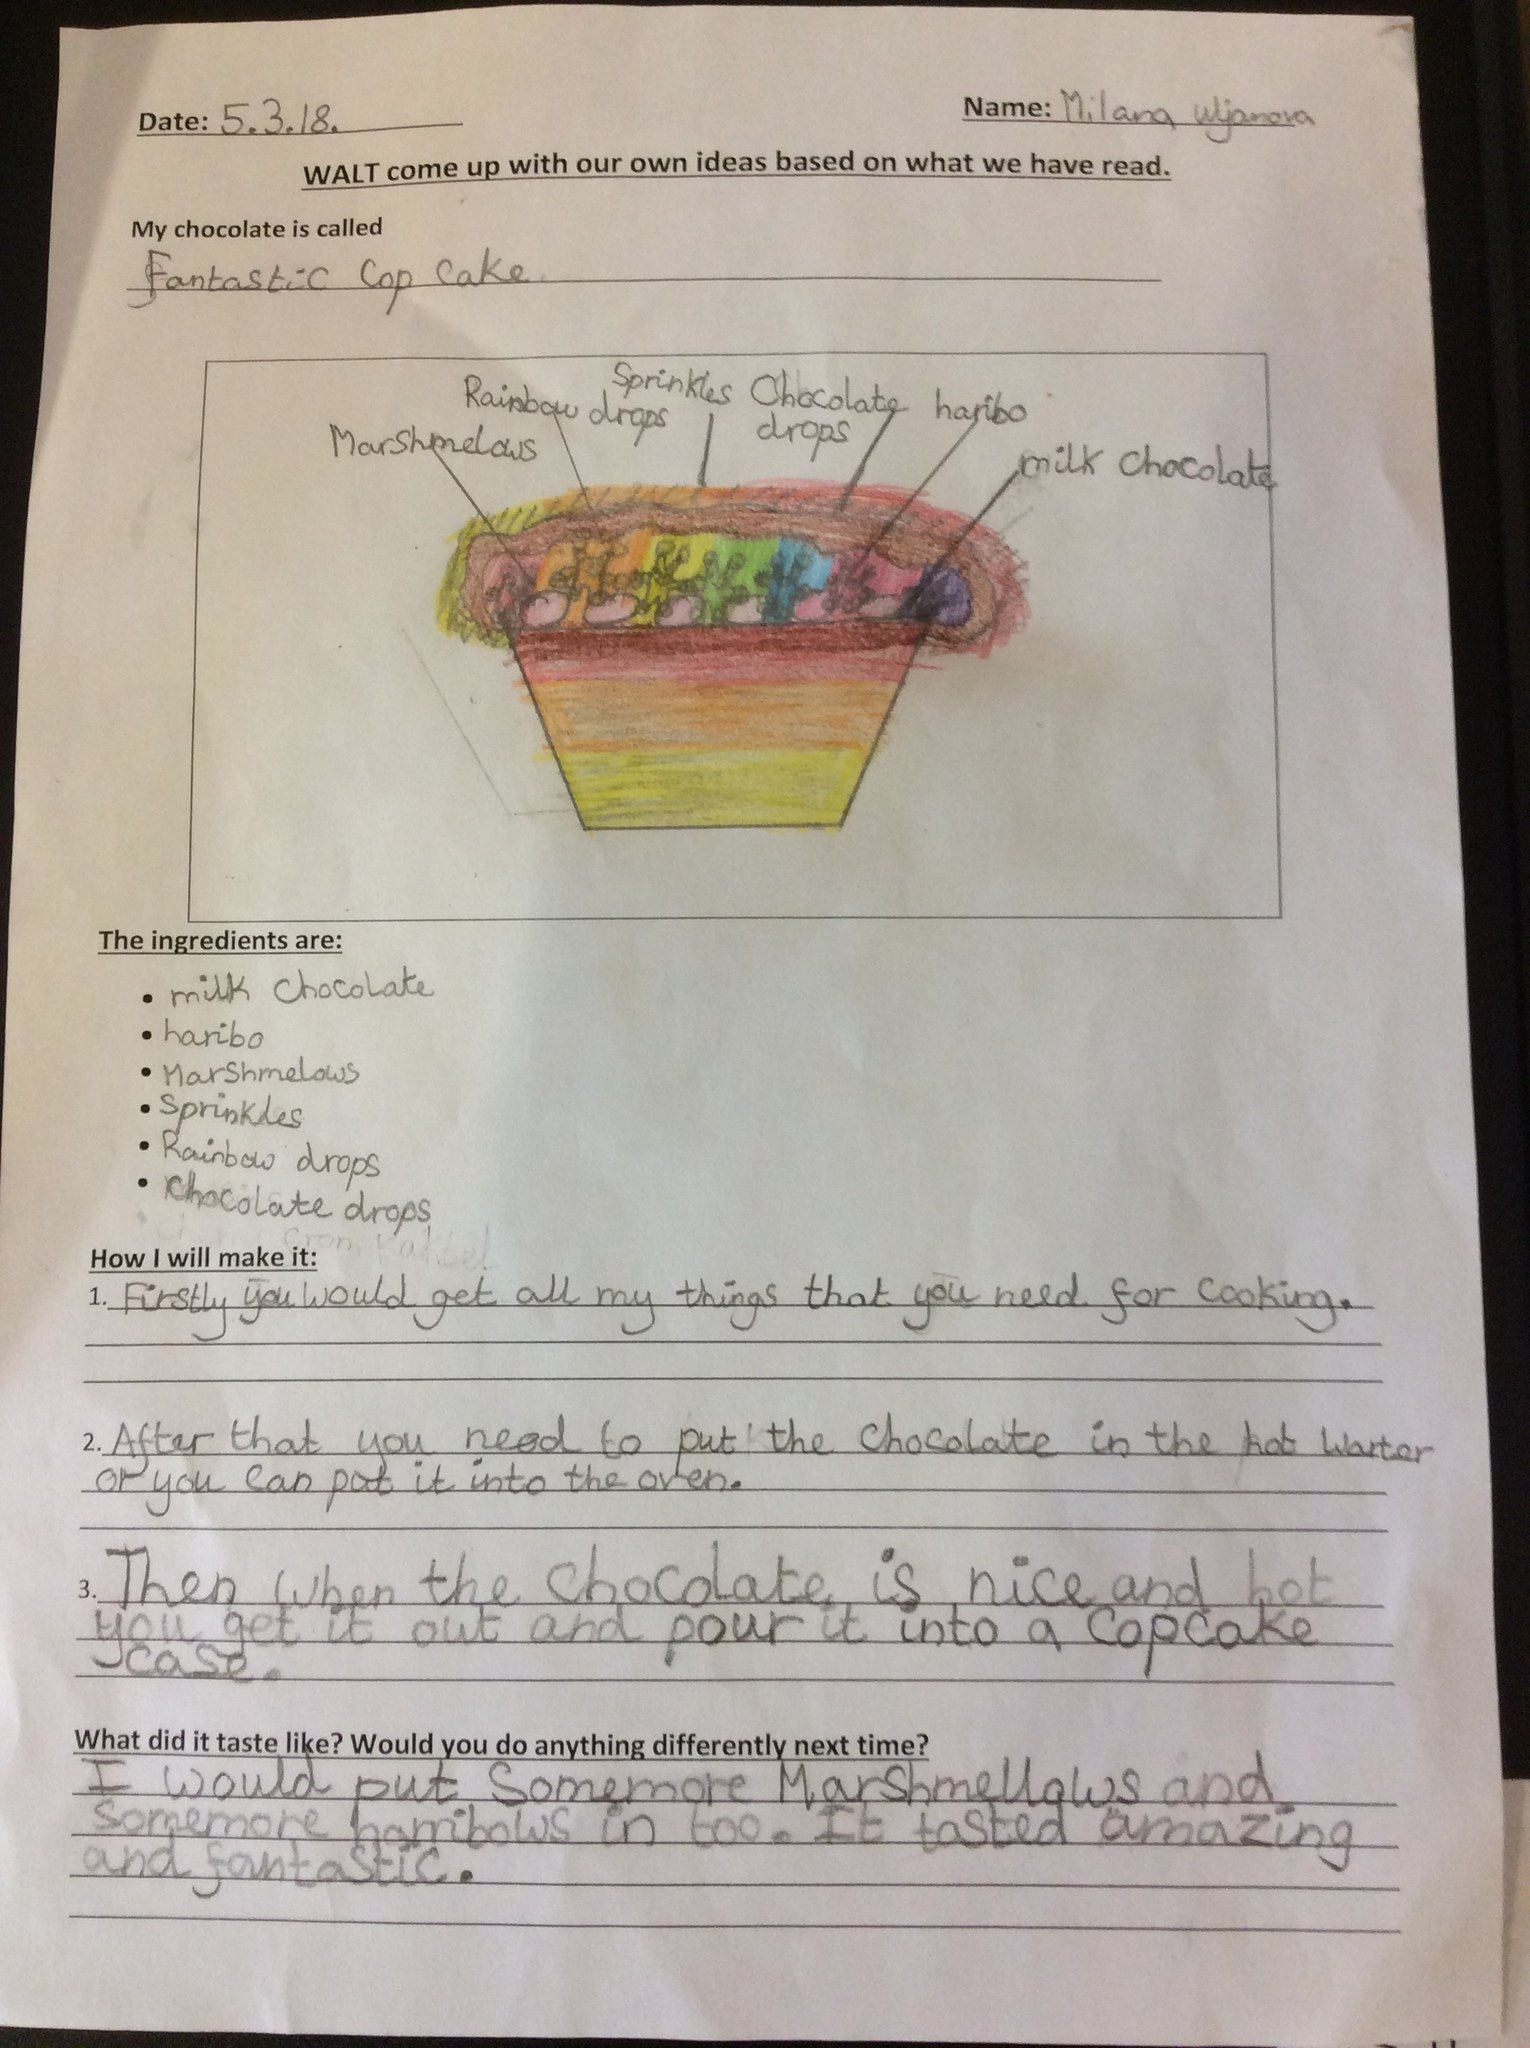 Date: 5.3.18.
Name: Milana Uljanova
WALT come up with our own ideas based on what we have read.
My chocolate is called
Fantastic Cop Cake
Sprinkles Chocolate drops haribo
Rainbow drops
Marshmelows
milk chocolate
The ingredients are:
• milk chocolate
• haribo
• Marshmelows
• Sprinkles
• Rainbow drops
• Chocolate drops
from
How I will make it:
1. Firstly you would get all my things that you need for cooking.
2. After that you need to put the chocolate in the hot warter
or you can put it into the oven.
3. Then when the chocolate is nice and hot
you get it out and pour it into a copcake
case.
What did it taste like? Would you do anything differently next time?
I would put Somemore Marshmellows and
somemore harribows in too. It tasted amazing
and fantastic.